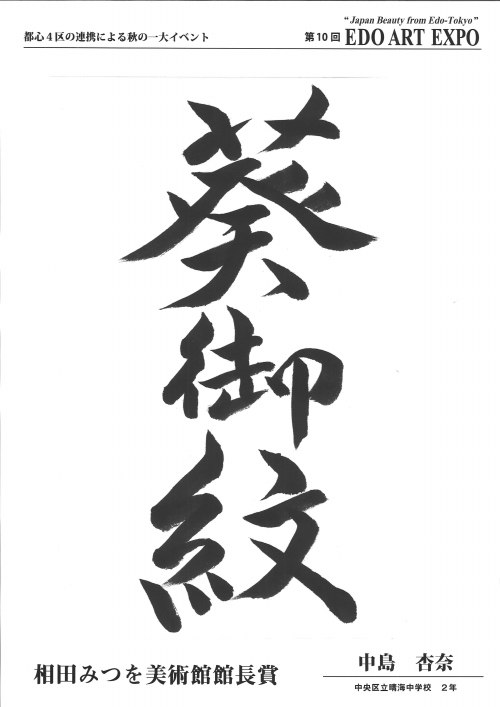 都心4区の連携による秋の一大イベント
第10回
"Japan Beauty from Edo-Tokyo"
EDO ART EXPO
葵御紋
相田みつを美術館館長賞
中島 杏奈
中央区立晴海中学校 2年